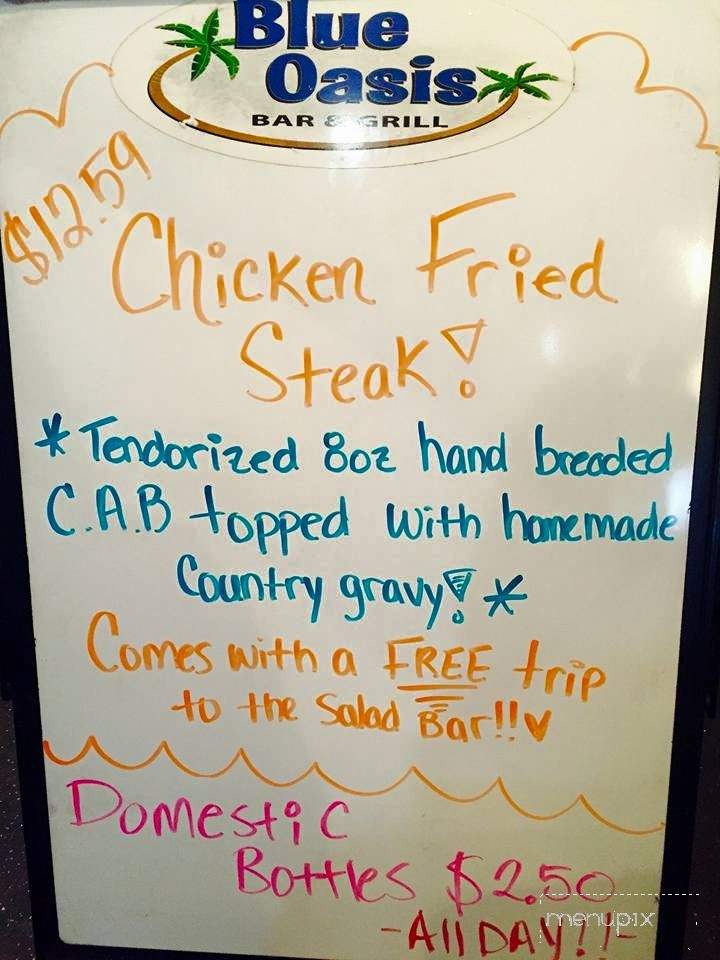 Blue
Oasis
BAR & GRILL
$12.59
Chicken Fried
Steak!
*Tendorized 8oz hand breaded
C.A.B topped with homemade
Country gravy! *
Comes with a FREE trip
to the Salad Bar!!♥
Domestic
Bottles $2.50
-All DAY!!-
menupix